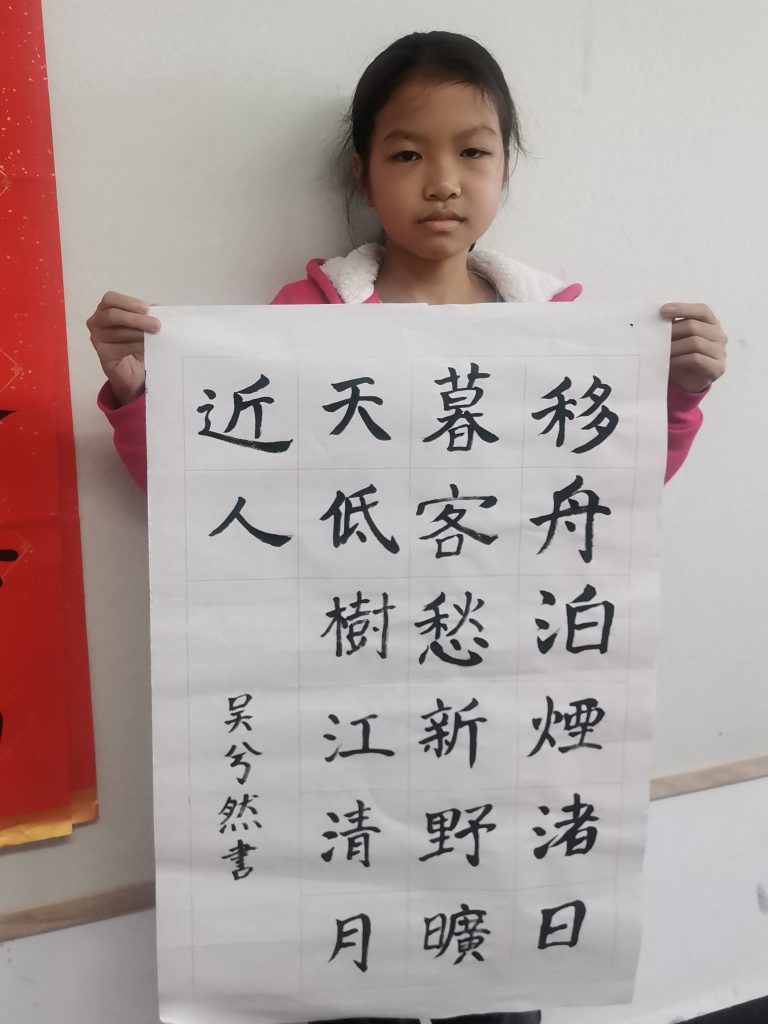 移舟泊煙渚日
暮客愁新野曠
天低樹江清月
近人
吴兮然書